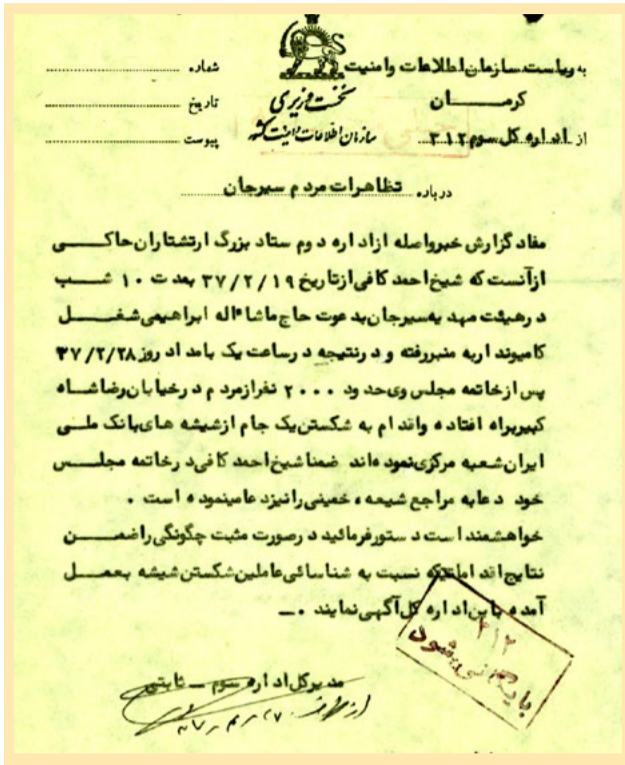 به ریاست سازمان اطلاعات و امنیت
کرمان
از اداره کل سوم ۳۱۲
نخست وزیری
سازمان اطلاعات و امنیت کشور
شماره
تاریخ
پیوست
درباره تظاهرات مردم سیرجان
مفاد گزارش خبر واصله از اداره دوم ستاد بزرگ ارتشتاران حاکی
از آنست که شیخ احمد کافی از تاریخ ۳۷/۲/۱۹ بمدت ۱۰ شب
در هیئت مهدیه سیرجان بدعوت حاج ماشاءاله ابراهیمی شغل
کامیوندار به منبر رفته و در نتیجه در ساعت یک بامداد روز ۳۷/۲/۲۸
پس از خاتمه مجلس وی حدود ۲۰۰۰ نفر از مردم در خیابان رضا شاه
کبیر براه افتاده و اقدام به شکستن یک جام از شیشه های بانک ملی
ایران شعبه مرکزی نموده اند ضمنا شیخ احمد کافی در خاتمه مجلس
خود دعا به مراجع شیعه، خمینی را نیز دعا مینموده است.
خواهشمند است دستور فرمائید در صورت مثبت چگونگی را ضمن
نتایج اقداماتیکه نسبت به شناسائی عاملین شکستن شیشه بعمل
آمده باین اداره کل آگهی نمایند.ـ
۳۱۲
بایگانی شود
مدیر کل اداره سوم ـ ثابتی
از طرف